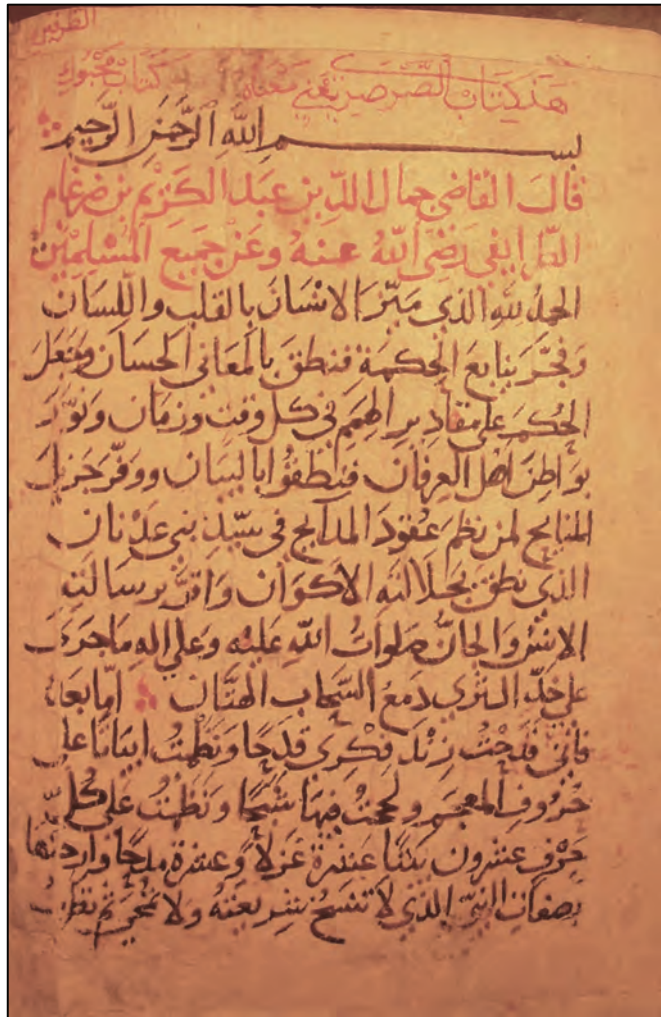 الطرفين
هذكتاب الصرصر يعني معناه كتاب محبوك
بسم الله الرحمن الرحيم
قال القاضي جمال الدين عبد الكريم بن ضرغام
الطرايفي رضي الله عنه وعن جميع المسلمين
الحمد لله الذي ميّز الانسان بالقلب واللسان
وفجّر ينابع الحكمة فنطق بالمعاني الحسان وجعل
الحكم على مقادير الهمم في كل وقت وزمان ونوّر
بواطن اهل العرفان فنطقوا بالبيان ووفّر جزيل
المنايح لمن نظم عقود المدايح في سيّد بني عدنان
الذي نطق بجلالته الاكوان واقرّ برسالته
الانس والجانّ صلوات الله عليه وعلى اله ما جرى
على خدّ الثرى دمع السّحاب الهتّان اما بعد
فاني قدحت زند فكرى قدحا ونظمت ابياتا على
حروف المعجم ونظمت على كل
حرف عشرون بيتا عشرة غزلا وعشرة مدحا واردفتها
بصفات النبي الذي لا تنسخ شريعته ولا